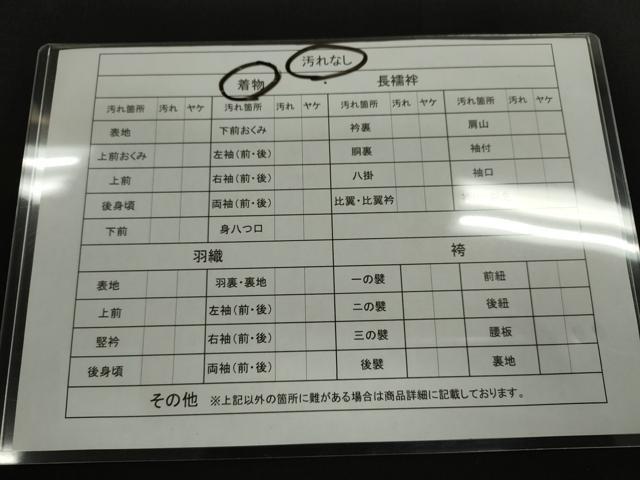 汚れなし
着物 ・ 長襦袢
汚れ箇所 汚れ ヤケ 汚れ箇所 汚れ ヤケ 汚れ箇所 汚れ ヤケ 汚れ箇所 汚れ ヤケ
表地 下前おくみ 衿裏 肩山
上前おくみ 左袖(前・後) 胴裏 袖付
上前 右袖(前・後) 八掛 袖口
後身頃 両袖(前・後) 比翼・比翼衿
下前 身八つ口
羽織 袴
表地 羽裏・裏地 一の襞 前紐
上前 左袖(前・後) 二の襞 後紐
竪衿 右袖(前・後) 三の襞 腰板
後身頃 両袖(前・後) 後襞 裏地
その他 ※上記以外の箇所に難がある場合は商品詳細に記載しております。